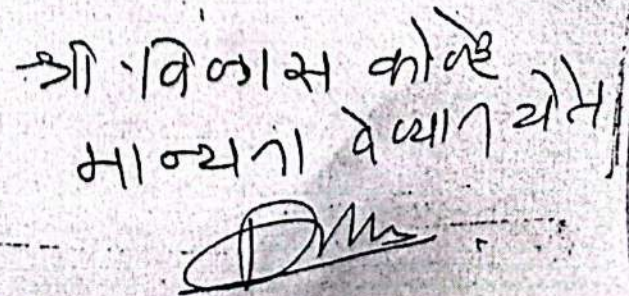 श्री. विकास कोल्हे
मान्यता देण्यात येते